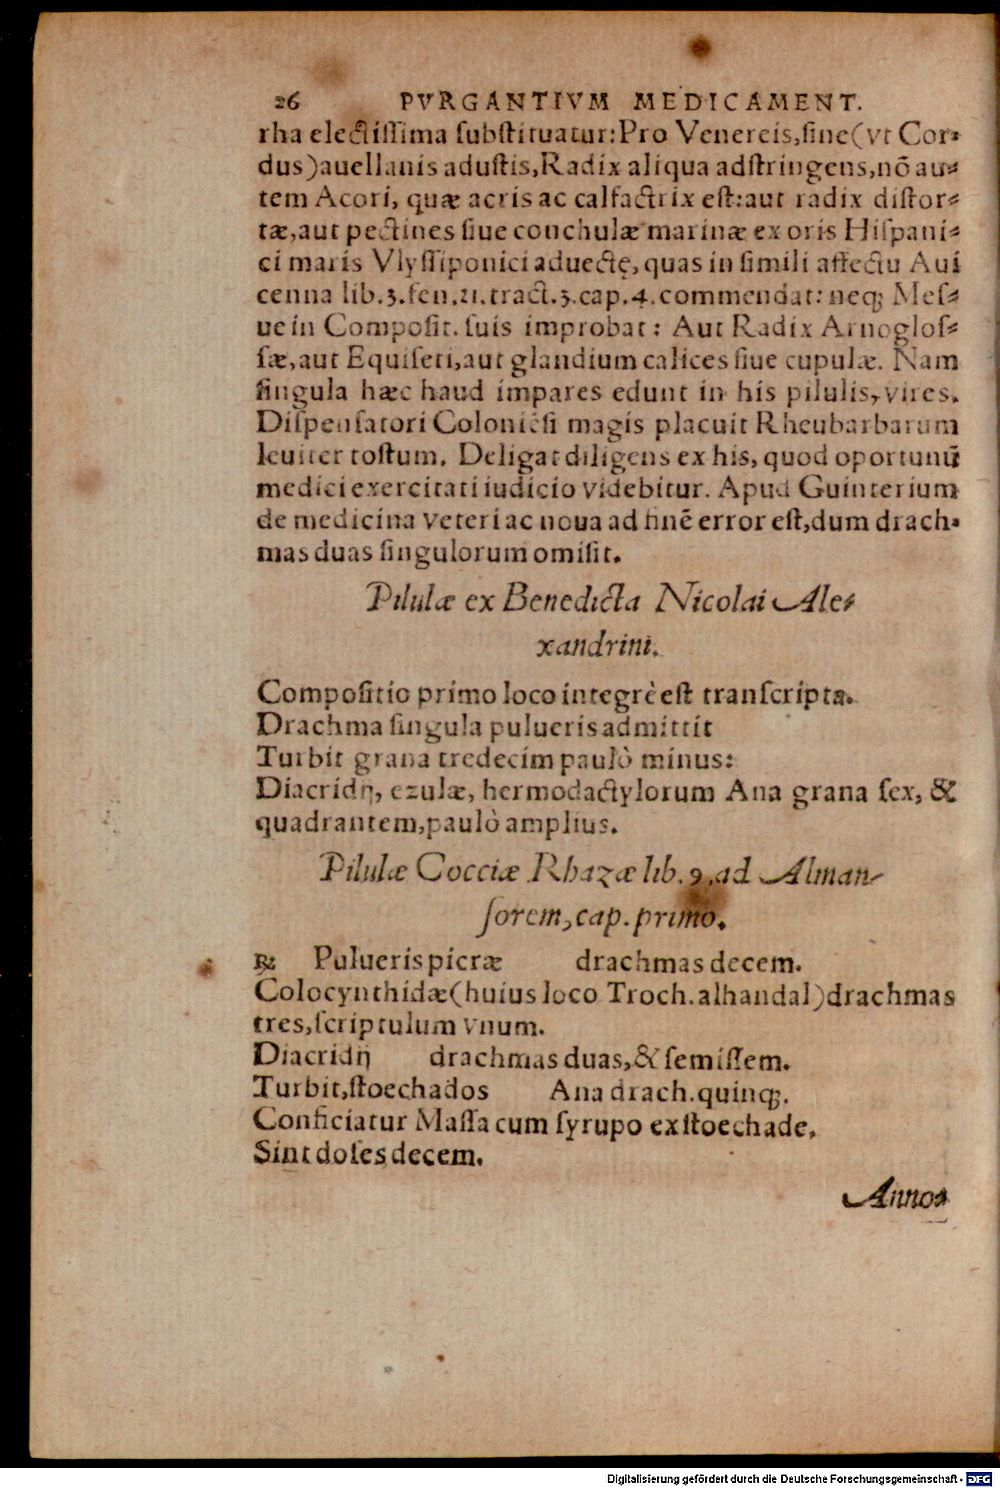 26 PVRGANTIVM MEDICAMENT.
rha electissima substituatur: Pro Venereis, siue (vt Cor-
dus) avellanis adustis, Radix aliqua adstringens, nō au-
tem Acori, quæ acris ac calfactrix est: aut radix distor-
tæ, aut pectines siue conchulæ marinæ ex oris Hispani-
ci maris Vlyssiponici aduectę, quas in simili affectu Aui
cenna lib. 3. fen. 21. tract. 3. cap. 4. commendat: neq; Mes-
ue in Composit. suis improbat: Aut Radix Arnoglos-
sæ, aut Equiseti, aut glandium calices siue cupulæ. Nam
singula hæc haud impares edunt in his pilulis, vires.
Dispensatori Coloniēsi magis placuit Rheubarbarum
leuiter tostum. Deligat diligens ex his, quod oportunū
medici exercitati iudicio videbitur. Apud Guinterium
de medicina veteri ac noua ad finē error est, dum drach-
mas duas singulorum omisit.
Pilulæ ex Benedicta Nicolai Ale-
xandrini.
Compositio primo loco integrè est transcripta.
Drachma singula pulueris admittit
Turbit grana tredecim paulò minus:
Diacridij, ezulæ, hermodactylorum Ana grana sex, &
quadrantem, paulò amplius.
Pilulæ Cocciæ Rhazæ lib. 9. ad Alman-
sorem, cap. primo.
℞ Pulueris picræ drachmas decem.
Colocynthidæ (huius loco Troch. alhandal) drachmas
tres, scriptulum vnum.
Diacridij drachmas duas, & semissem.
Turbit, stoechados Ana drach. quinq;.
Conficiatur Massa cum syrupo ex stoechade.
Sint doses decem.
Anno-
Digitalisierung gefördert durch die Deutsche Forschungsgemeinschaft - DFG